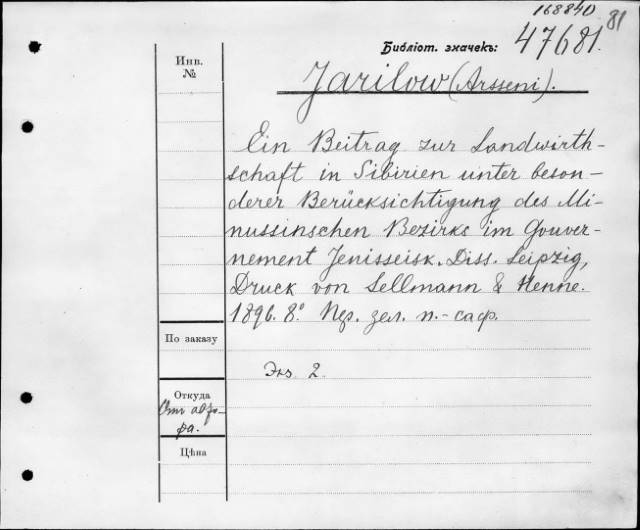 168840
81
Библіот. значекъ: 47681.
Инв.
№
Jarilow (Arsseni).
Ein Beitrag zur Landwirth-
schaft in Sibirien unter beson-
derer Berücksichtigung des Mi-
nussinschen Bezirks im Gouver-
nement Jenisseisk. Diss. Leipzig,
Druck von Sellmann & Henne.
1896. 8° Пер. зел. п.-саф.
По заказу
Экз. 2.
Откуда
Отъ авто-
ра.
Цѣна